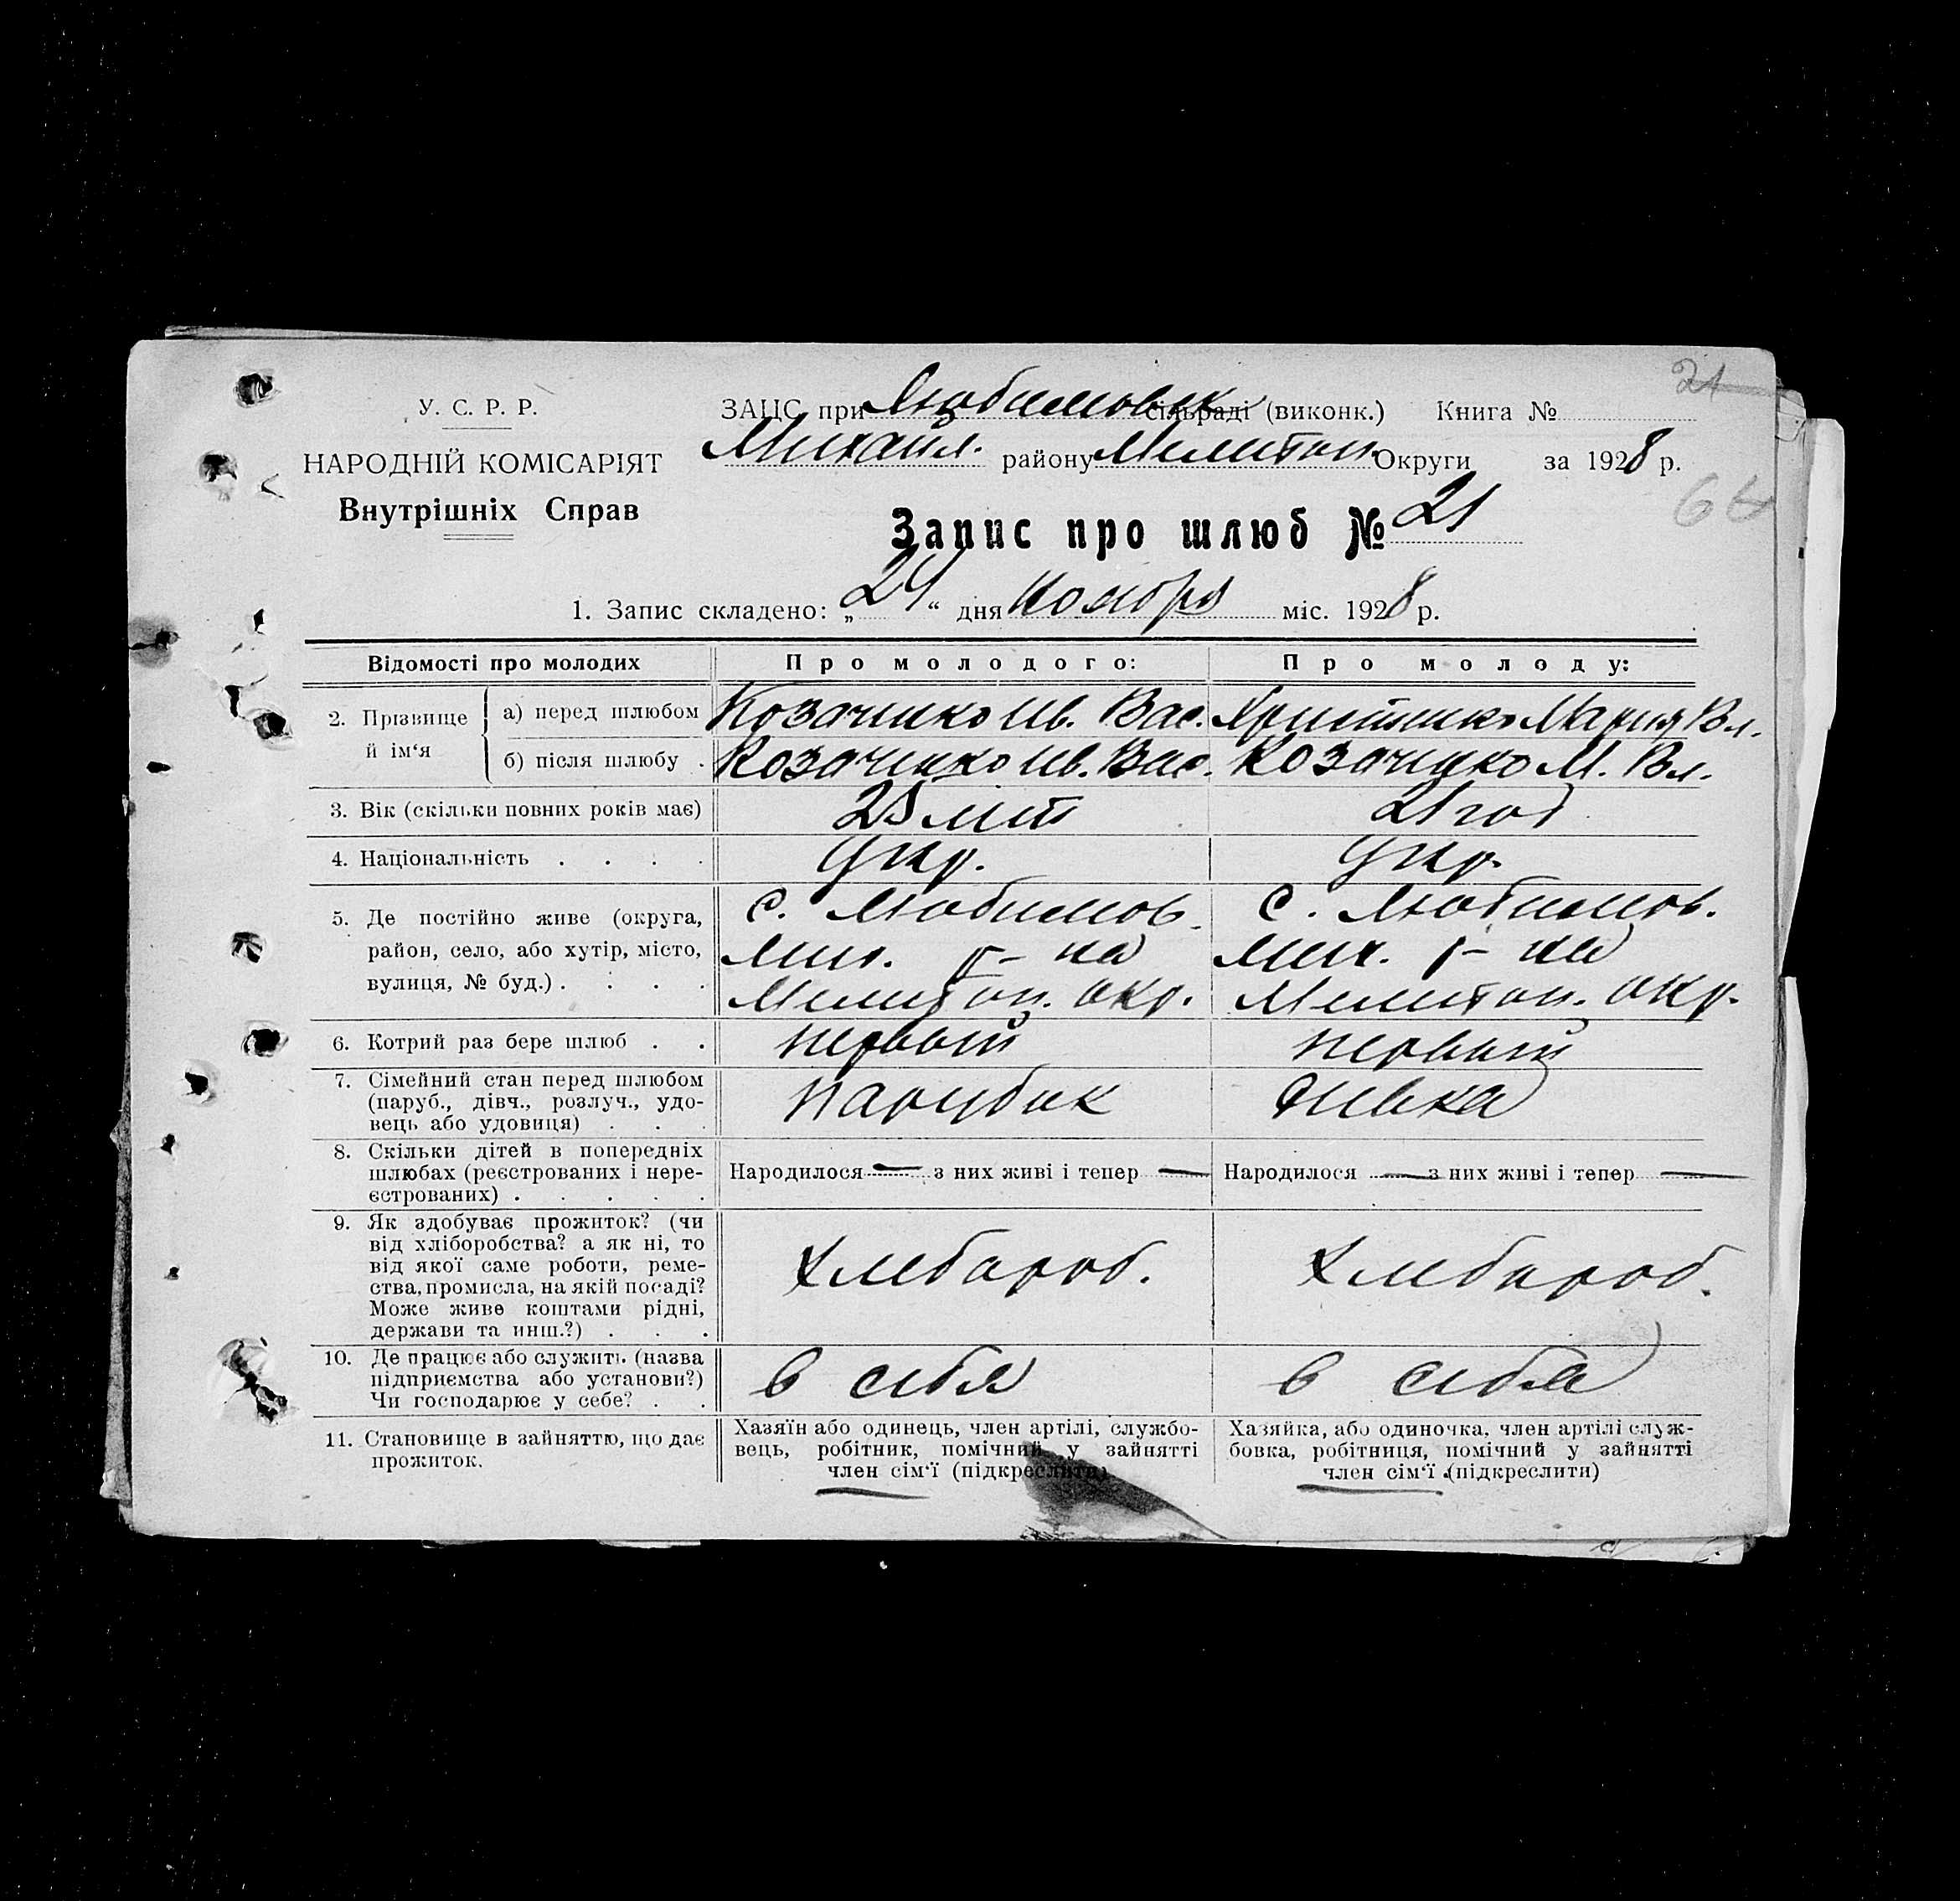 21
У. С. Р. Р.
ЗАЦС при Любимовск сільраді (виконк.) Книга №
НАРОДНІЙ КОМІСАРІЯТ
Михайл. району Мелитоп. Округи за 1928 р.
Внутрішніх Справ
Запис про шлюб № 21
1. Запис складено: „24“ дня Ноября міс. 1928 р.
Відомості про молодих
Про молодого:
Про молоду:
2. Прізвище й ім‘я
а) перед шлюбом
Козаченко Ив. Вас.
Мария Вл.
б) після шлюбу .
Козаченко Ив. Вас.
Козаченко М. Вл.
3. Вік (скільки повних років має)
лет
21 год
4. Національність . . . .
Укр.
Укр.
5. Де постійно живе (округа,
район, село, або хутір, місто,
вулиця, № буд.) . . . .
с. Любимов.
Мих. р-на
Мелитоп. окр.
с. Любимов.
Мих. р-на
Мелитоп. окр.
6. Котрий раз бере шлюб . .
первый
первый
7. Сімейний стан перед шлюбом
(паруб., дівч., розлуч., удо-
вець або удовиця) . . .
парубок
девка
8. Скільки дітей в попередніх
шлюбах (реєстрованих і нере-
єстрованих) . . . . .
Народилося — з них живі і тепер —
Народилося — з них живі і тепер —
9. Як здобуває прожиток? (чи
від хліборобства? а як ні, то
від якої саме роботи, реме-
ства, промисла, на якій посаді?
Може живе коштами рідні,
держави та инш.?) . . .
хлебороб.
хлебороб.
10. Де працює або служить (назва
підприємства або установи?)
Чи господарює у себе? . .
в себя
в себя
11. Становище в зайняттю, що дає
прожиток.
Хазяїн або одинець, член артілі, службо-
вець, робітник, помічний у зайнятті
член сім‘ї (підкреслити)
Хазяйка, або одиночка, член артілі служ-
бовка, робітниця, помічний у зайнятті
член сім‘ї (підкреслити)